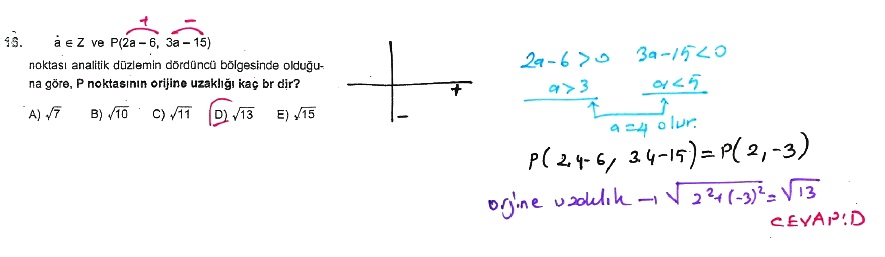 + −
16. a ∈ Z ve P(2a − 6, 3a − 15)
noktası analitik düzlemin dördüncü bölgesinde olduğu-
na göre, P noktasının orijine uzaklığı kaç br dir?
A) √7 B) √10 C) √11 D) √13 E) √15
+
−
2a-6>0 3a-15<0
a>3 a<5
a=4 olur.
P(2.4-6, 3.4-15)=P(2,-3)
orjine uzaklık → √2²+(-3)² = √13
CEVAP:D